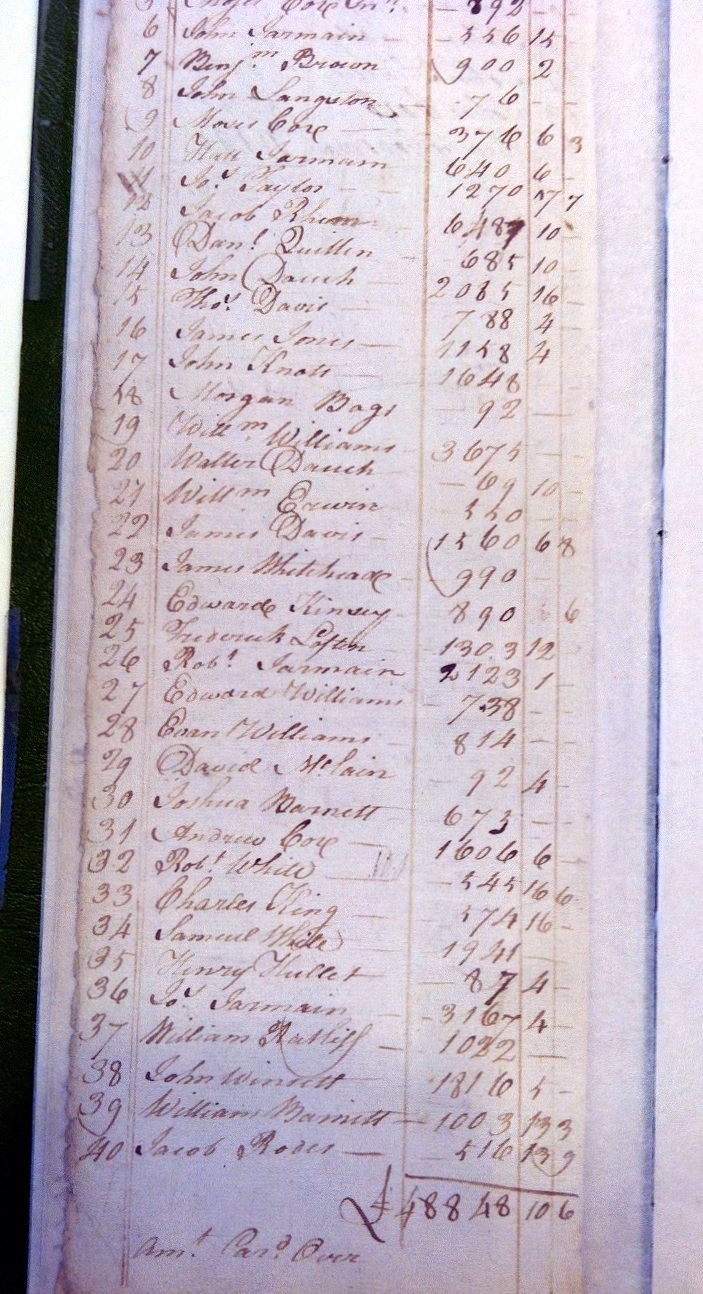 6 John Jarmain — 556 15 -
7 Benj.m Brown 900 2
8 John Langston - 76 - -
9 Moses Cox — 376 6 3
10 Hall Jarmain 640 6 -
11 Jos. Taylor - - 1270 17 7
12 Jacob Rhem 6487 10 -
13 Dan.l Quillin - 685 10 -
14 John Dauch — 2085 16 -
15 Tho.s Davis — 788 4 -
16 James Jones — 1158 4
17 John Knott — 1648 -
18 Morgan Bags - 92 —
19 Will.m Williams 3675 - -
20 Walter Dauch - 69 10 -
21 Will.m Erwin - 550 - -
22 James Davis - 1560 6 8
23 James Whitehead - 990 -
24 Edward Kinsey - 890 6
25 Frederick Loften - 1303 12
26 Rob.t Jarmain 2123 1 -
27 Edward Williams - 738 - -
28 Evan Williams - 814 - -
29 David McLain - 92 4 -
30 Joshua Barnett 673 - -
31 Andrew Cox — 1606 6 -
32 Rob.t White — 545 16 6
33 Charles King — 574 16 -
34 Samuel White 1941 —
35 Henry Hullet - 87 4 -
36 Jos. Jarmain 3167 4 -
37 William Ratliff - 1022 —
38 John Winnett 1816 5 -
39 William Barnett - 1003 13 3
40 Jacob Roves — 516 13 9
£ 48848 10 6
Am.t Car.d Over